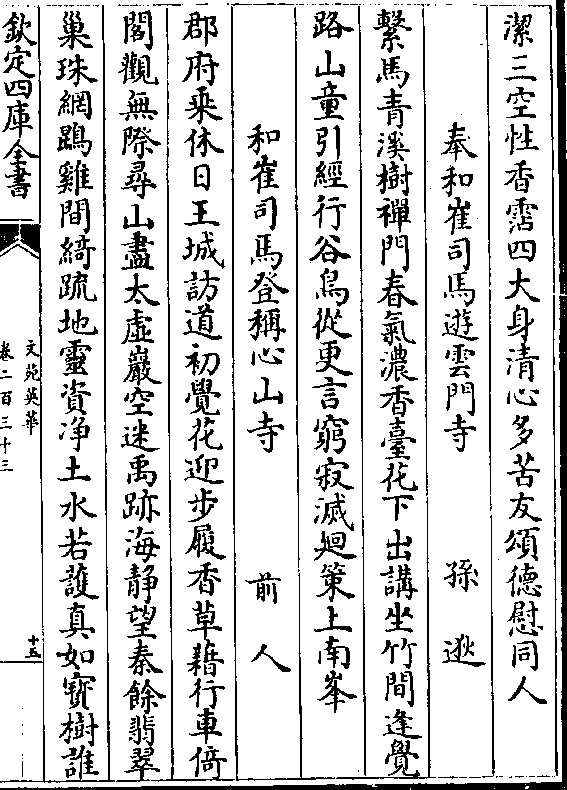 潔三空性香霑四大身清心多苦友頌德慰同人
奉和崔司馬遊雲門寺 孫逖
繫馬青溪樹禪門春氣濃香臺花下出講坐竹間逢覺
路山童引經行谷鳥從更言窮寂滅廻策上南峯
和崔司馬登稱心山寺 前人
郡府乘休日王城訪道初覺花迎步履香草藉行車倚
閣觀無際尋山盡太虛巖空迷禹跡海静望秦餘翡翠
巢珠網鵾雞間綺疏地靈資净土水若護真如寳樹誰
欽定四庫全書
文苑英華
卷二百三十三
十五